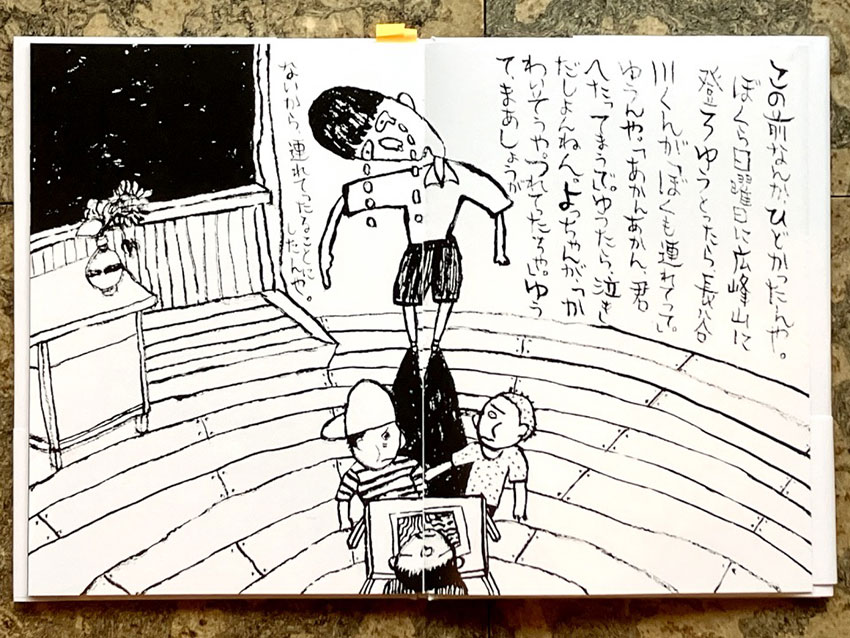 この前なんか、ひどかったんや。
ぼくら日曜日に広峰山に
登ろゆうとったら、長谷
川くんが「ぼくも連れてって。」
ゆうんや。「あかんあかん、君
へたってまうで。」ゆうたら、泣き
だしよんねん。よっちゃんが、「か
わいそうや。つれてったろや。」ゆう
て、まあしょうが
ないから、連れてったることに
したんや。